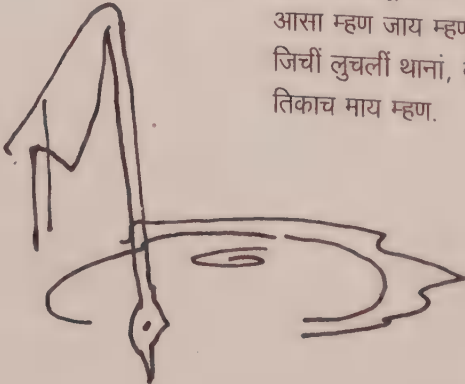 आसा म्हण जाय म्हण
जिचीं लुचलीं थानां,
तिकाच माय म्हण.